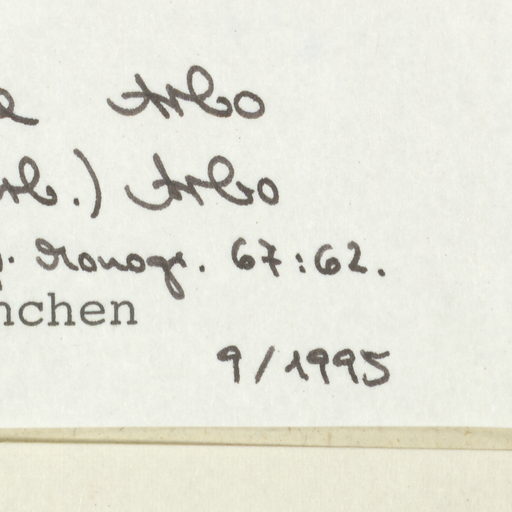 Arbo
rb.) Arbo
. Monogr. 67:62.
nchen
9/1995